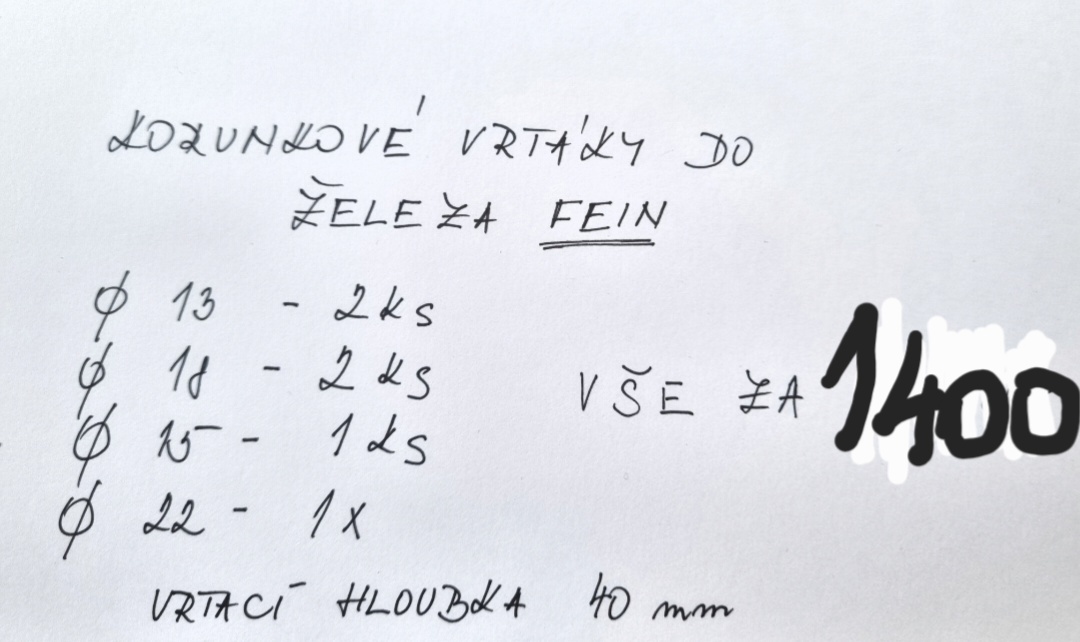 KORUNKOVÉ VRTÁKY DO
ŽELEZA FEIN
ϕ 13 - 2 ks
ϕ 18 - 2 ks
ϕ 15 - 1 ks
ϕ 22 - 1 x
VŠE ZA 1400
VRTACÍ HLOUBKA 40 mm